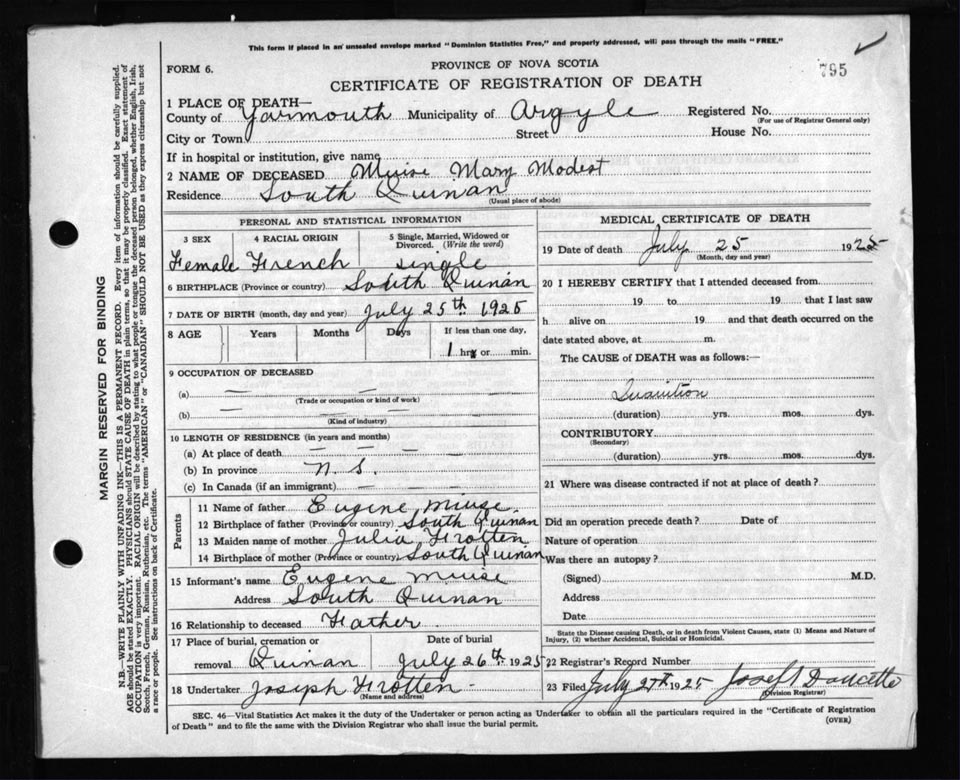 This form if placed in an unsealed envelope marked "Dominion Statistics Free," and properly addressed, will pass through the mails "FREE."
795
FORM 6.
PROVINCE OF NOVA SCOTIA
CERTIFICATE OF REGISTRATION OF DEATH
1 PLACE OF DEATH—
County of Yarmouth Municipality of Argyle Registered No.
(For use of Registrar General only)
City or Town Street House No.
If in hospital or institution, give name
2 NAME OF DECEASED Muise Mary Modest
Residence South Quinan
(Usual place of abode)
PERSONAL AND STATISTICAL INFORMATION
3 SEX 4 RACIAL ORIGIN 5 Single, Married, Widowed or Divorced. (Write the word)
Female French single
6 BIRTHPLACE (Province or country) South Quinan
7 DATE OF BIRTH (month, day and year) July 25th 1925
8 AGE Years Months Days If less than one day,
1 hrs or min.
9 OCCUPATION OF DECEASED
(a) — —
(Trade or occupation or kind of work)
(b) — —
(Kind of industry)
10 LENGTH OF RESIDENCE (in years and months)
(a) At place of death — — —
(b) In province N. S.
(c) In Canada (if an immigrant) — — —
Parents
11 Name of father Eugene Muise
12 Birthplace of father (Province or country) South Quinan
13 Maiden name of mother Julia Frotten
14 Birthplace of mother (Province or country) South Quinan
15 Informant's name Eugene Muise
Address South Quinan
16 Relationship to deceased Father
17 Place of burial, cremation or removal Quinan
Date of burial July 26th 1925
18 Undertaker Joseph Frotten
(Name and address)
MEDICAL CERTIFICATE OF DEATH
19 Date of death July 25 1925
(Month, day and year)
20 I HEREBY CERTIFY that I attended deceased from
19 to 19 that I last saw
h alive on 19 and that death occurred on the
date stated above, at m.
The CAUSE of DEATH was as follows:—
Inanition
(duration) yrs. mos. dys.
CONTRIBUTORY
(Secondary)
(duration) yrs. mos. dys.
21 Where was disease contracted if not at place of death?
Did an operation precede death? Date of
Nature of operation
Was there an autopsy?
(Signed) M.D.
Address
Date
State the Disease causing Death, or in death from Violent Causes, state (1) Means and Nature of Injury, (2) whether Accidental, Suicidal or Homicidal.
22 Registrar's Record Number
23 Filed July 27th 1925 Josef Doucette
(Division Registrar)
SEC. 46—Vital Statistics Act makes it the duty of the Undertaker or person acting as Undertaker to obtain all the particulars required in the "Certificate of Registration
of Death" and to file the same with the Division Registrar who shall issue the burial permit.
(OVER)
MARGIN RESERVED FOR BINDING
N.B.—WRITE PLAINLY WITH UNFADING INK—THIS IS A PERMANENT RECORD. Every item of information should be carefully supplied.
AGE should be stated EXACTLY. PHYSICIANS should STATE CAUSE OF DEATH in plain terms, so that it may be properly classified. Exact statement of
OCCUPATION is very important. RACIAL ORIGIN will be described by stating to what people or tongue the deceased person belonged, whether English, Irish,
Scotch, French, German, Russian, Ruthenian, etc. The terms "AMERICAN" or "CANADIAN" SHOULD NOT BE USED as they express citizenship but not
a race or people. See instructions on back of Certificate.